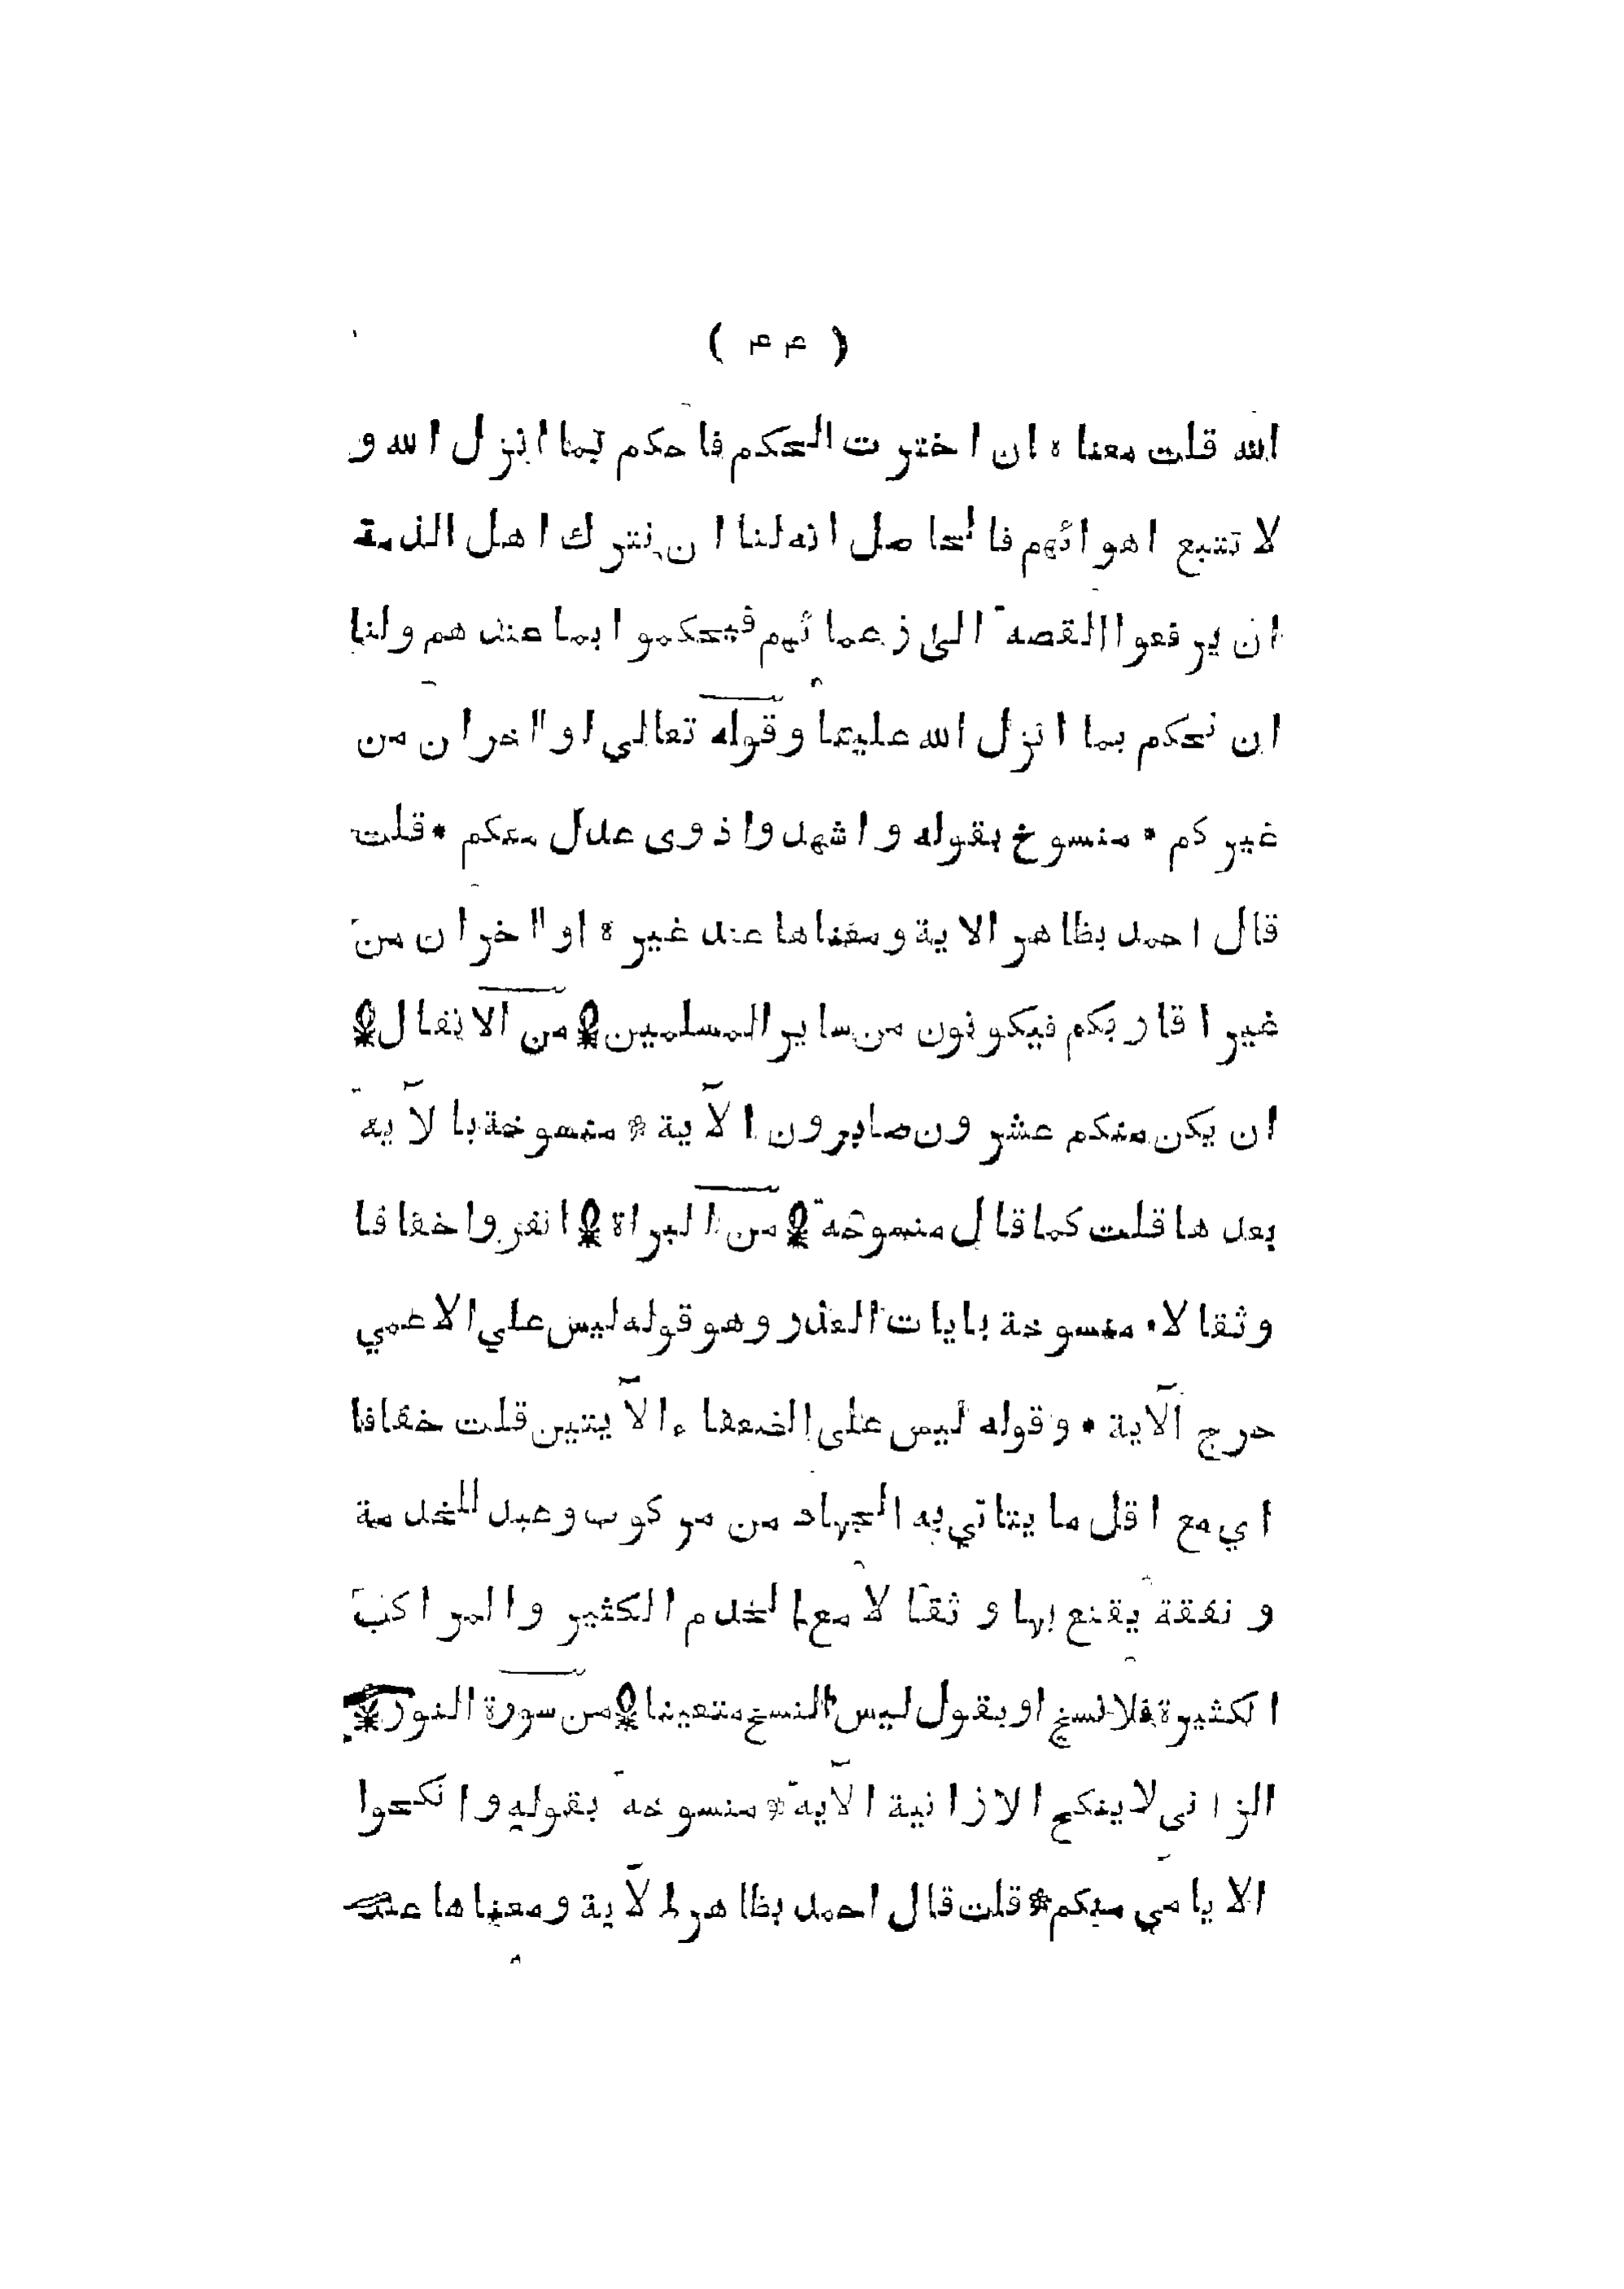 ( ۴۴ )
الله قلت معناه ان اخترت الحكم فاحكم بما انزل الله و
لا تتبع اهوائهم فالحاصل انه لنا ان نترك اهل الذمة
ان يرفعوا القصة الى زعمائهم فيحكموا بما عندهم ولنا
ان نحكم بما انزل الله علينا وقوله تعالي او اخران من
غيركم * منسوخ بقوله واشهدوا ذوى عدل منكم * قلت
قال احمد بظاهر الاية ومعناها عند غيره او اخران من
غير اقاربكم فيكونون من ساير المسلمين من الانفال
ان يكن منكم عشرون صابرون الآية * منسوخة بالآية
بعدها قلت كما قال منسوخة من البراة انفروا خفافا
وثقالا * منسوخة بايات العذر وهو قوله ليس علي الاعمي
حرج الآية * وقوله ليس على الضعفاء الآيتين قلت خفافا
اي مع اقل ما يتاتي به الجهاد من مركوب وعبد للخدمة
ونفقة يقنع بها وثقالا مع الخدم الكثير والمراكب
الكثيرة فلا نسخ او بقول ليس النسخ متعينا من سورة النور
الزانى لا ينكح الا زانية الآية * منسوخة بقوله وانكحوا
الايامي منكم * قلت قال احمد بظاهر الآية ومعناها عند